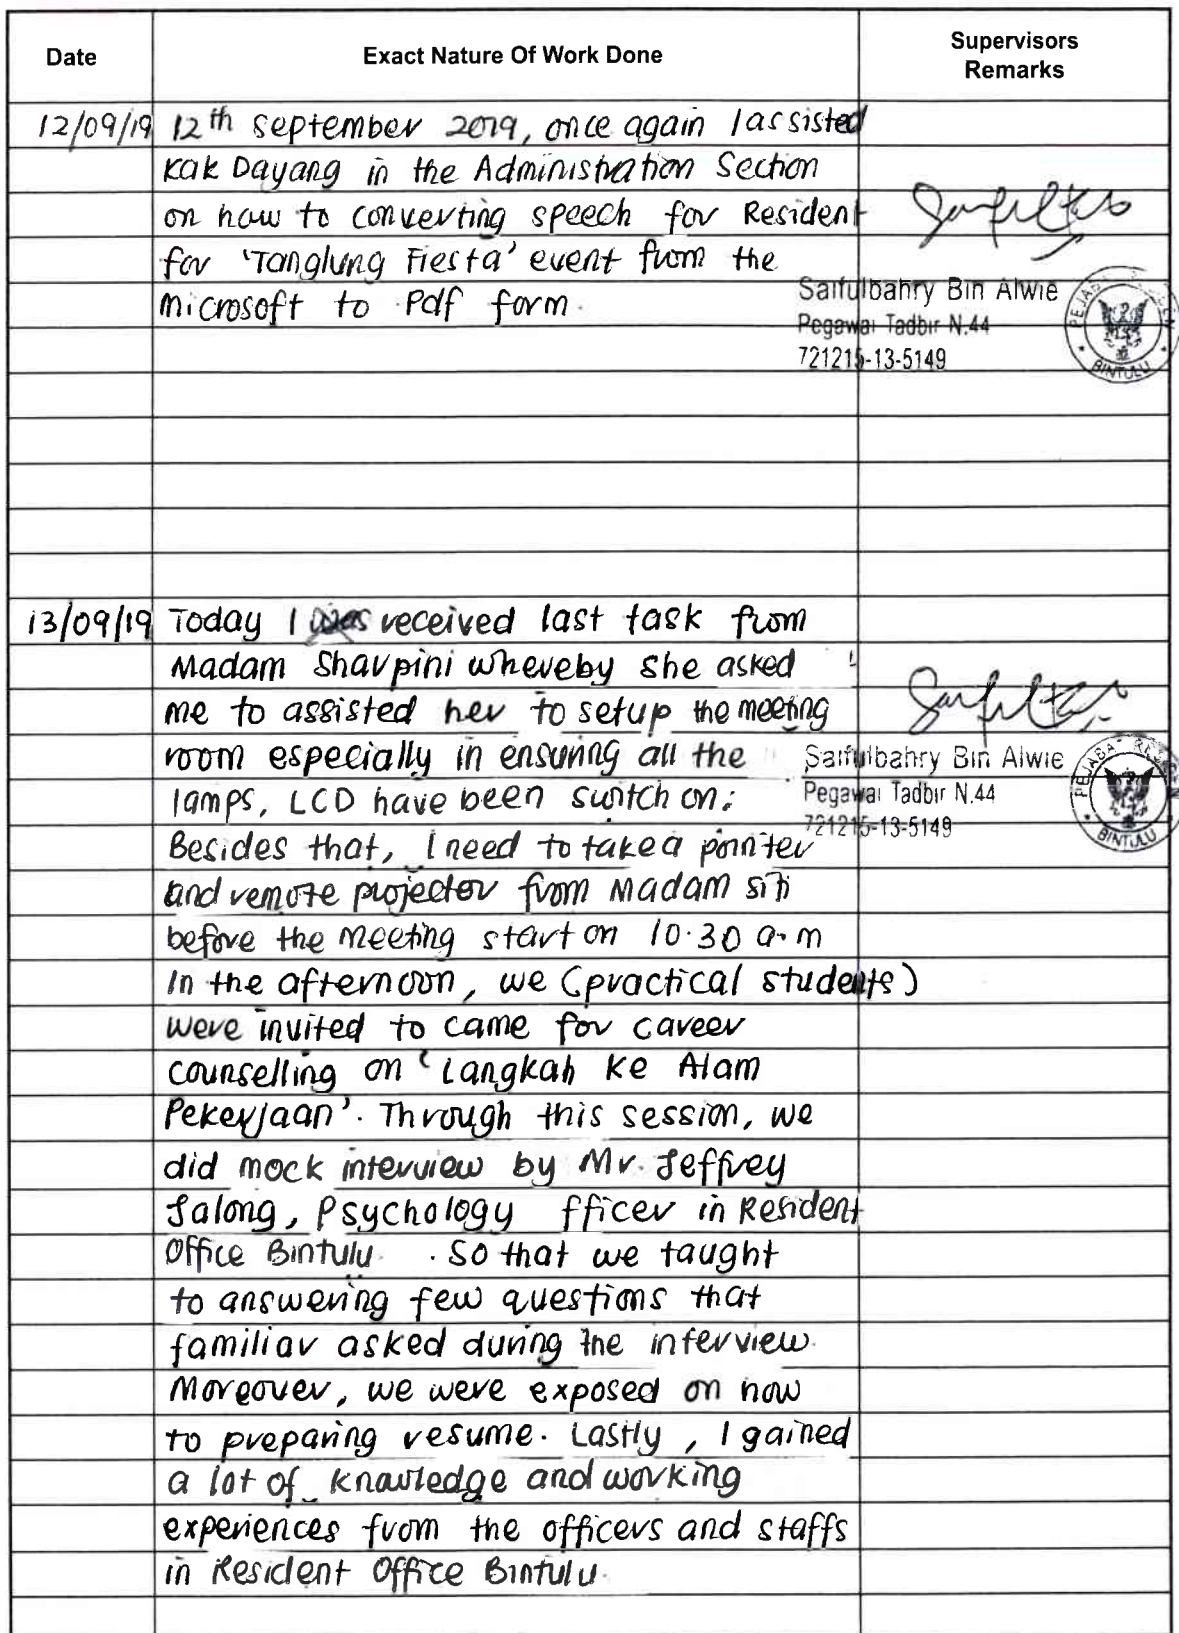 Date Exact Nature Of Work Done Supervisors
Remarks
12/09/19 12th september 2019, once again I assisted
Kak Dayang in the Administration Section
on how to converting speech for Resident
for 'Tanglung Fiesta' event from the
Microsoft to Pdf form.
Saifulbahry Bin Alwie
Pegawai Tadbir N.44
721215-13-5149
PEJABAT RESIDEN
BINTULU
13/09/19 Today I received last task from
Madam Sharpini whereby she asked
me to assisted her to setup the meeting
room especially in ensuring all the
lamps, LCD have been switch on.
Saifulbahry Bin Alwie
Pegawai Tadbir N.44
721215-13-5149
PEJABAT RESIDEN
BINTULU
Besides that, I need to take a pointer
and remote projector from Madam Siti
before the meeting start on 10.30 a.m
In the afternoon, we (practical students)
were invited to came for career
counselling on 'Langkah Ke Alam
Pekerjaan'. Through this session, we
did mock interview by Mr. Jeffrey
Jalong, Psychology fficer in Resident
Office Bintulu. So that we taught
to answering few questions that
familiar asked during the interview.
Moreover, we were exposed on how
to preparing resume. Lastly, I gained
a lot of knowledge and working
experiences from the officers and staffs
in Resident Office Bintulu.